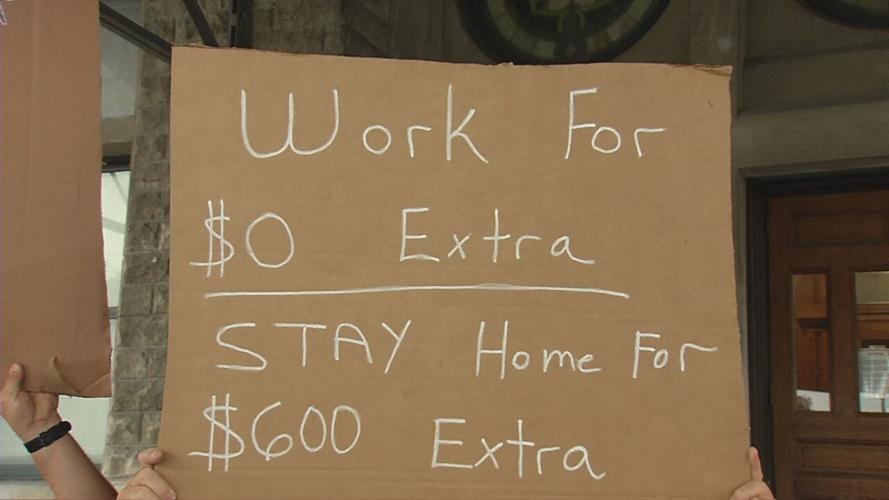 Work For
$0 Extra
STAY Home For
$600 Extra